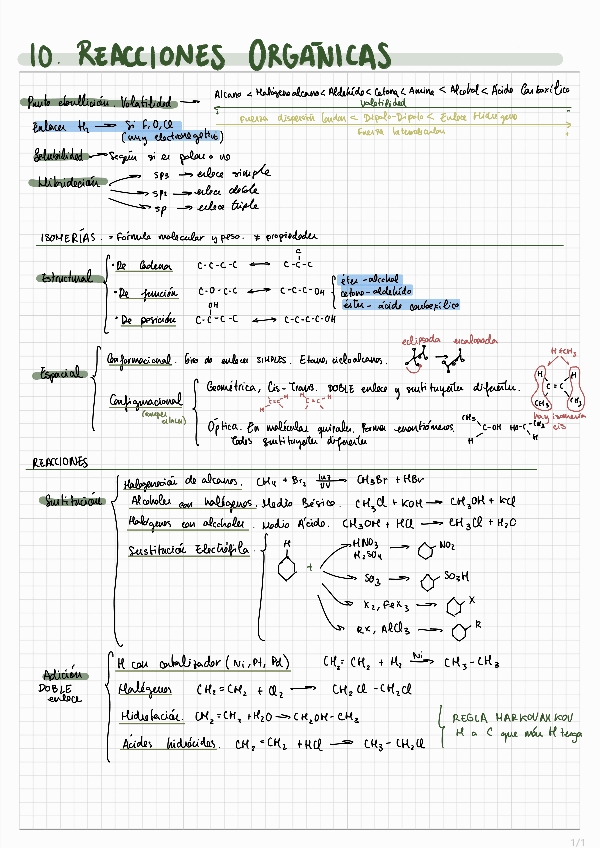 10. REACCIONES ORGÁNICAS
Punto ebullición Volatilidad → Alcano < Halógenoalcano < Aldehído < Cetona < Amina < Alcohol < Ácido Carboxílico
Volatilidad
Fuerza dispersión London < Dipolo-Dipolo < Enlace Hidrógeno
Fuerza Intermolecular
Enlaces H₂ → Si F, O, Cl
(muy electronegativo)
Solubilidad → Según si es polar o no
Hibridación → sp3 → enlace simple
→ sp2 → enlace doble
→ sp → enlace triple
ISOMERÍAS. = Fórmula molecular y peso. ≠ propiedades
Estructural
• De cadena C-C-C-C ↔ C-C-C
C
• De función C-O-C-C ↔ C-C-C-OH
éter - alcohol
cetona - aldehído
éster - ácido carboxílico
OH
• De posición C-C-C-C ↔ C-C-C-C-OH
Espacial
Conformacional. Giro de enlaces SIMPLES. Etano, cicloalcanos.
eclipsada escalonada
Configuracional
(romper enlaces)
Geométrica, Cis-Trans. DOBLE enlace y sustituyentes diferentes.
H C=C H H C=C H
H ≠ CH₃
H H
C = C
CH₃ CH₃
hay isomería
cis
Óptica. En moléculas quirales. Forman enantiómeros.
Todos sustituyentes diferentes
CH₃ C-OH H HO-C CH₃ H
REACCIONES
Sustitución
Halogenación de alcanos. CH₄ + Br₂ luz UV CH₃Br + HBr
Alcoholes con halógenos. Medio Básico. CH₃Cl + KOH → CH₃OH + KCl
Halógenos con alcoholes. Medio Ácido. CH₃OH + HCl → CH₃Cl + H₂O
Sustitución Electrófila
H +
HNO₃
H₂SO₄ → NO₂
SO₃ → SO₃H
X₂, FeX₃ → X
RX, AlCl₃ → R
Adición
DOBLE
enlace
H con catalizador (Ni, Pt, Pd) CH₂=CH₂ + H₂ Ni → CH₃-CH₃
Halógenos CH₂=CH₂ + Cl₂ → CH₂Cl-CH₂Cl
Hidratación. CH₂=CH₂ + H₂O → CH₂OH-CH₃
Ácidos hidrácidos. CH₂=CH₂ + HCl → CH₃-CH₂Cl
REGLA MARKOVNIKOV
H a C que más H tenga
1/1